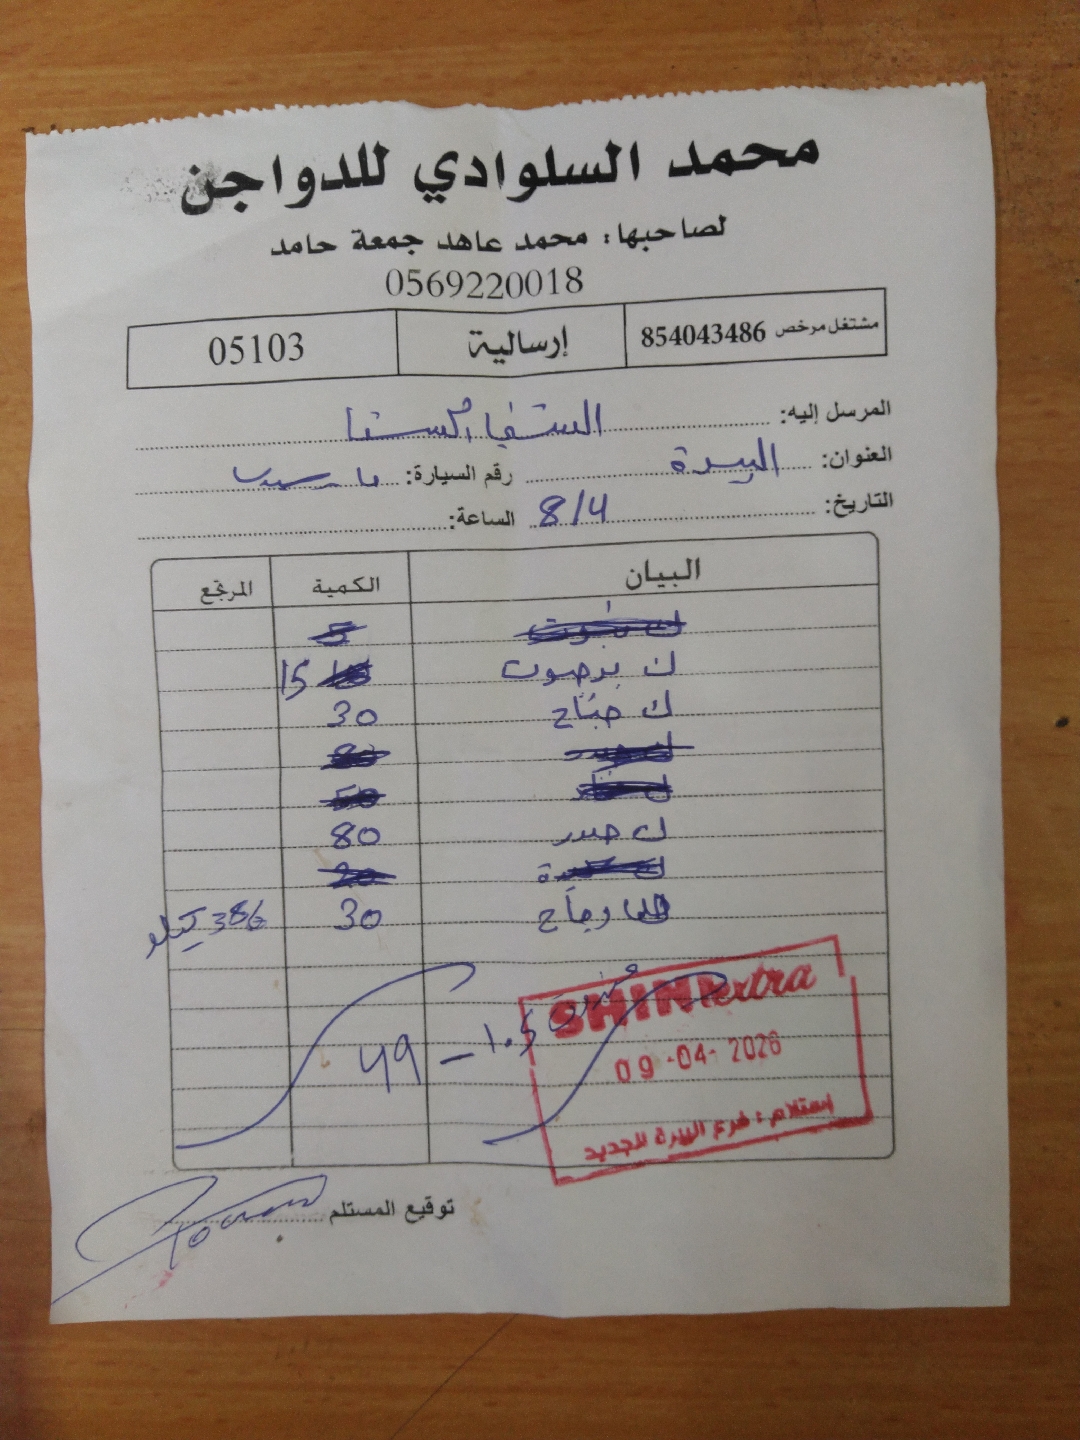 محمد السلوادي للدواجن
لصاحبها: محمد عاهد جمعة حامد
0569220018
مشتغل مرخص 854043486 إرسالية 05103
المرسل إليه:
العنوان: البيرة رقم السيارة:
التاريخ: 8/4 الساعة:
البيان الكمية المرتجع
5
ك 15
ك جناح 30
ك صدر 80
دجاج 30 386 كيلو
49 – 1.5
SHINI extra
09-04-2026
استلام: فرع البيرة الجديد
توقيع المستلم